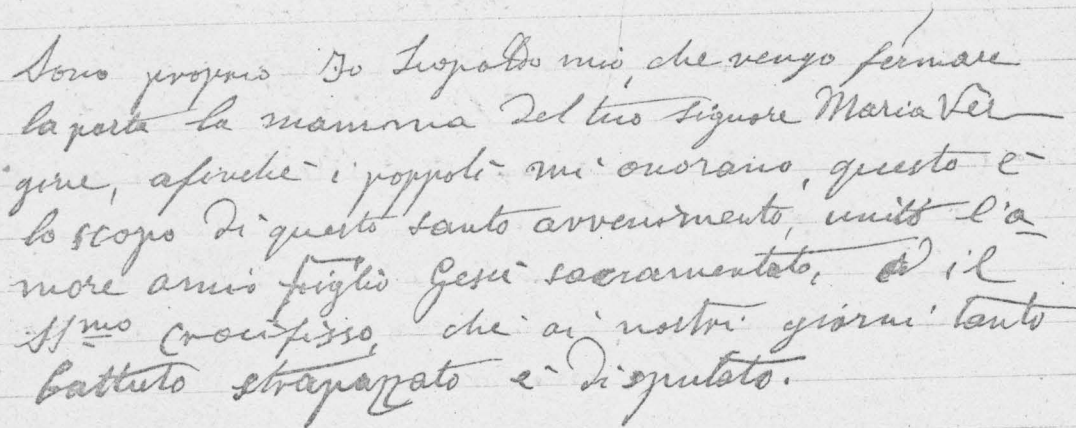 Sono proprio Io Leopoldo mio, che vengo fermare
la porta la mamma del tuo Signore Maria Ver
gine, afinchè i poppoli mi onorano, questo è
lo scopo di questo santo avvenimento, unito l'a
more a mio figlio Gesù sacramentato, ed il
SSmo Crocifisso, che ai nostri giorni tanto
battuto strapazzato e disputato.